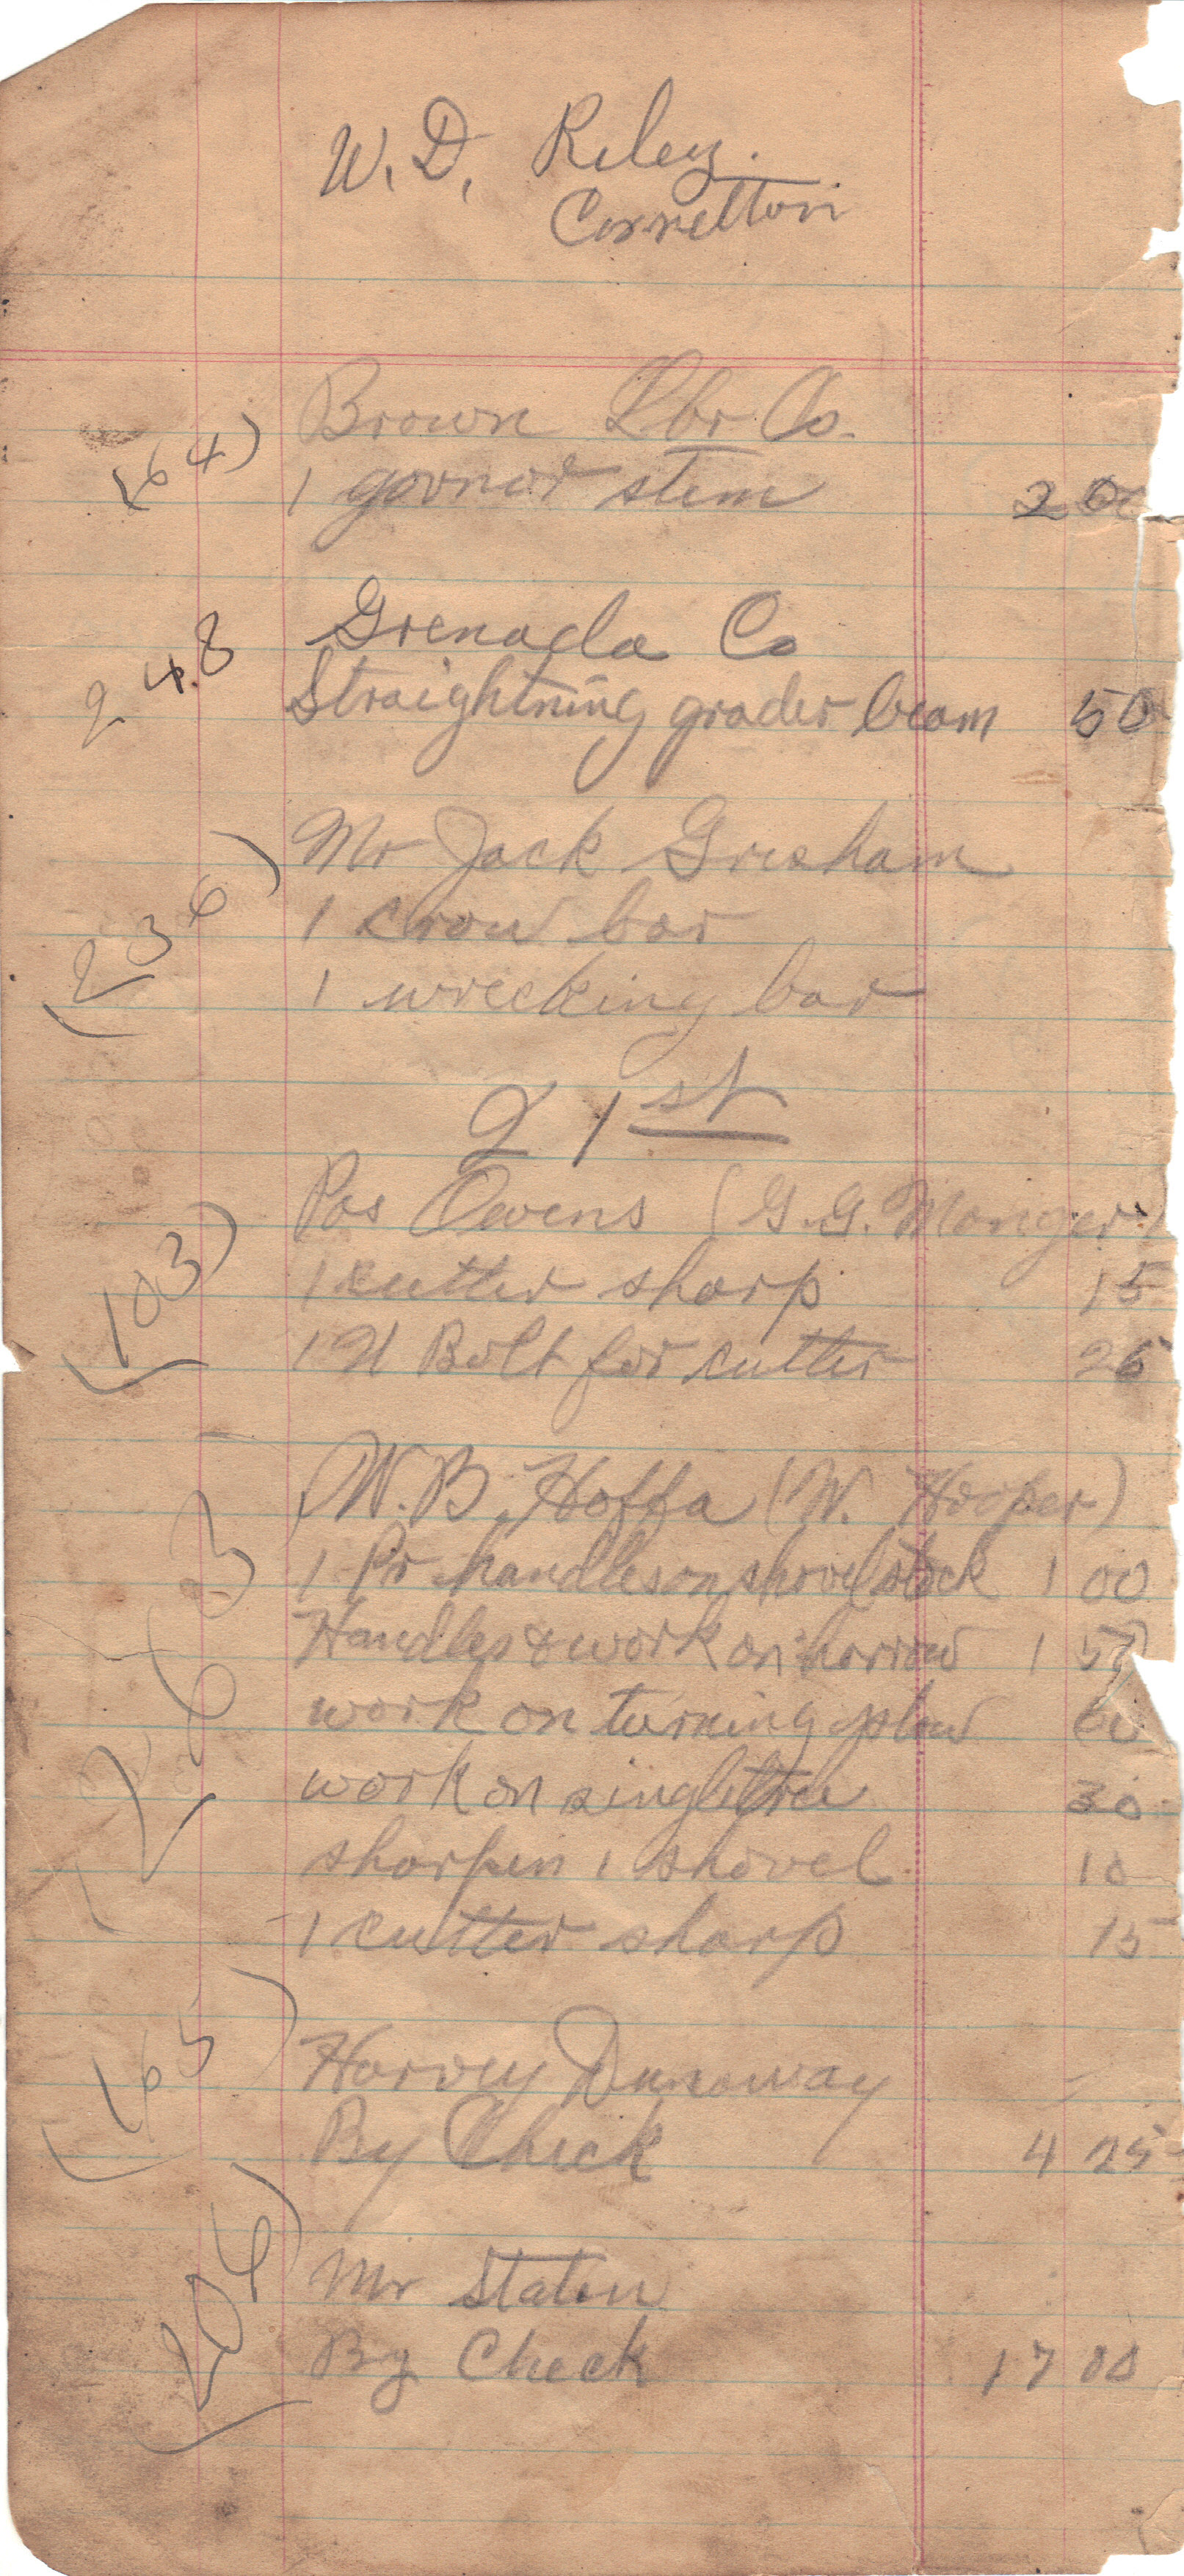 W. D. Riley.
Correlton
Brown Lbr Co.
(64) 1 govnor stem 2 00
248 Grenada Co
Straightning grader beam 50
Mr Jack Gresham
(236) 1 crow bar
1 wrecking bar
21st
Pas Owens (G. G. Monger)
(103) 1 cutter sharp 15
1 U Bolt for cutter 25
W. B. Hoffa (W. Hooper)
1 Pr handles on shovel stock 1 00
(263) Handles & work on harrow 1 50
work on turning plow 60
work on singletree 30
sharpin 1 shovel 10
1 cutter sharp 15
(165) Harvey Dunaway
By Check 4 25
(206) Mr Staten
By Check 17 00